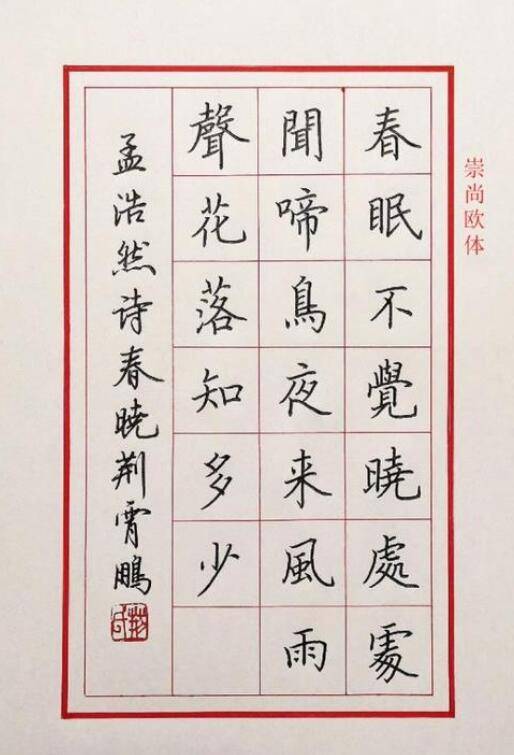 崇尚欧体
春眠不覺曉處處
聞啼鳥夜来風雨
聲花落知多少
孟浩然诗春曉荆霄鵬